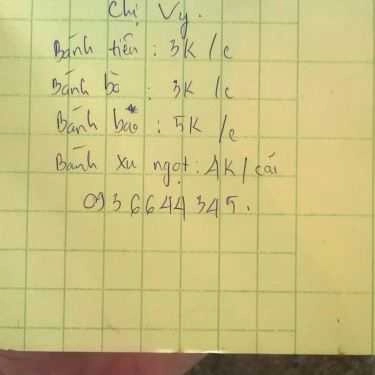 Chị Vy.
Bánh tiêu : 3K /c
Bánh bò : 3K /c
Bánh bao : 5K /c
Bánh xu ngọt : 4K / cái
0936644345.